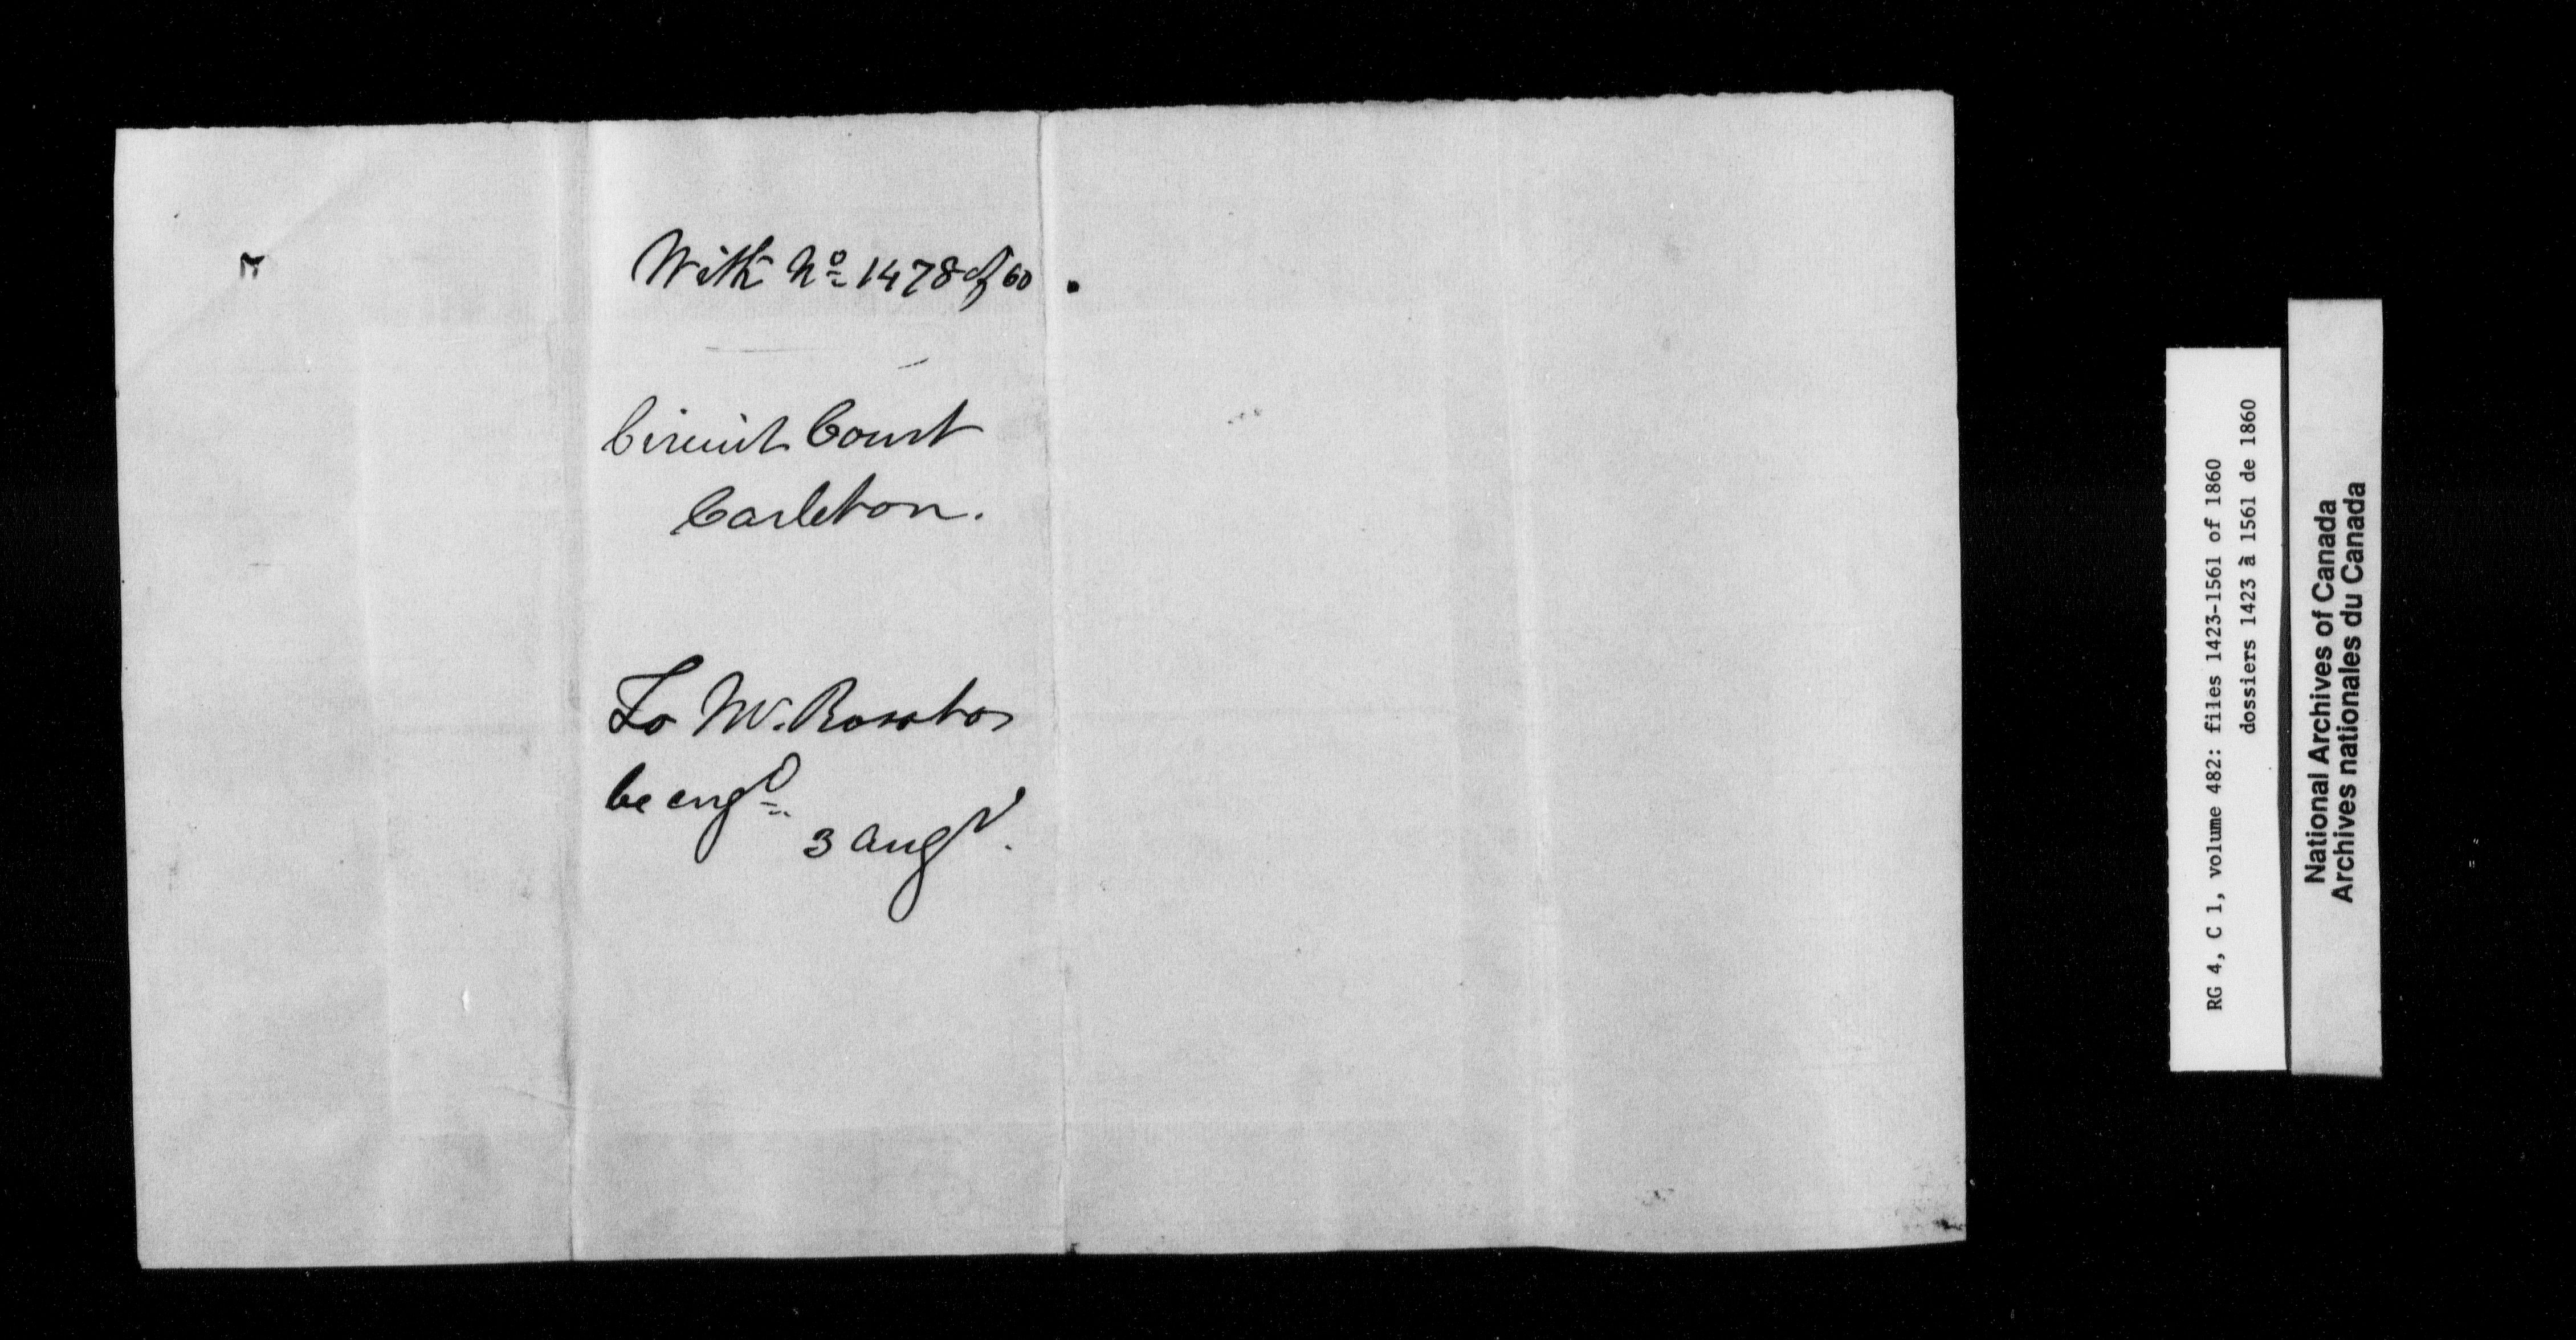 With No 1478 of 60.
Circuit Court
Carleton.
To Mr. Ross to
be engd.
3 Augt.
RG 4, C 1, volume 482: files 1423-1561 of 1860
dossiers 1423 à 1561 de 1860
National Archives of Canada
Archives nationales du Canada